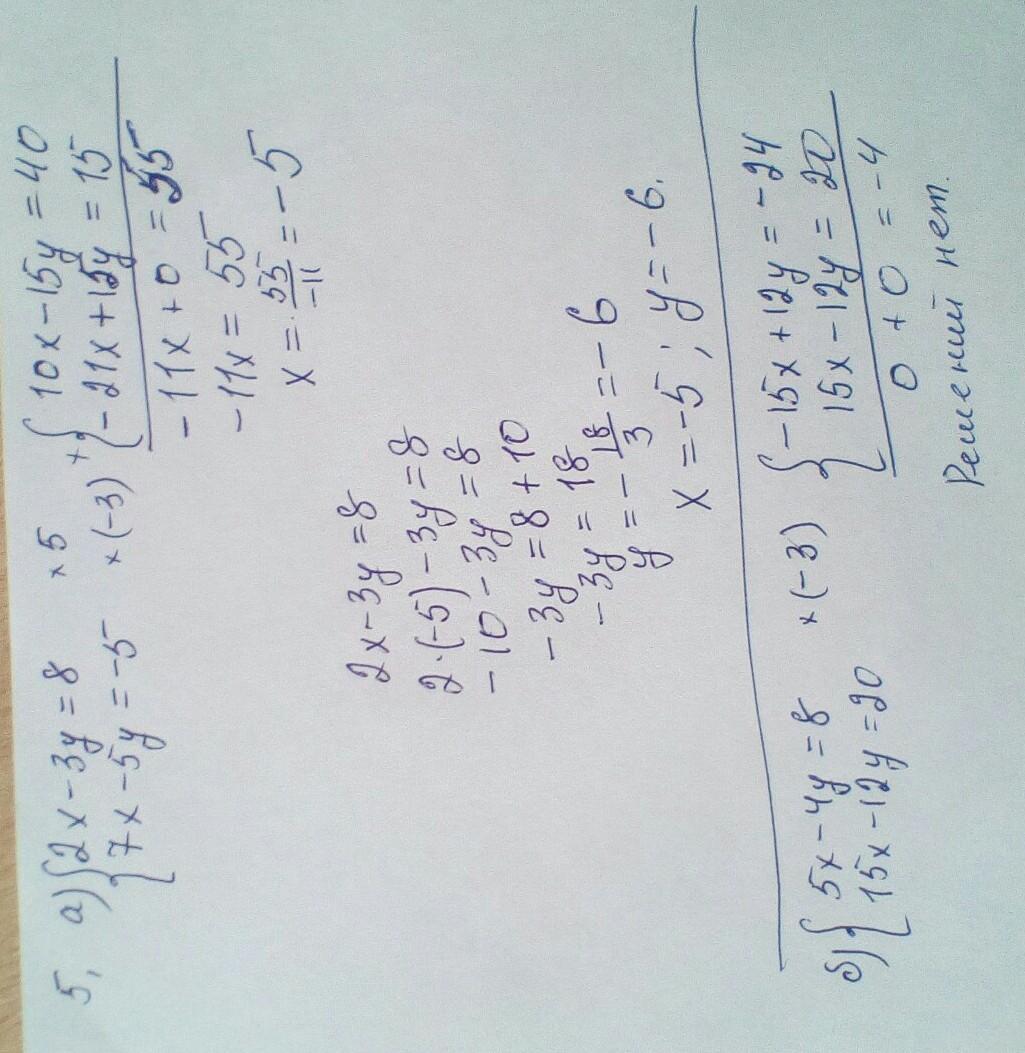 5, а) { 2x - 3y = 8 × 5 + { 10x - 15y = 40
{ 7x - 5y = -5 × (-3) { -21x + 15y = 15
-11x + 0 = 55
-11x = 55
x = 55/-11 = -5
2x - 3y = 8
2·(-5) - 3y = 8
-10 - 3y = 8
-3y = 8 + 10
-3y = 18
y = - 18/3 = -6
x = -5 ; y = -6.
б) { 5x - 4y = 8 × (-3) { -15x + 12y = -24
{ 15x - 12y = 20 { 15x - 12y = 20
0 + 0 = -4
Решений нет.